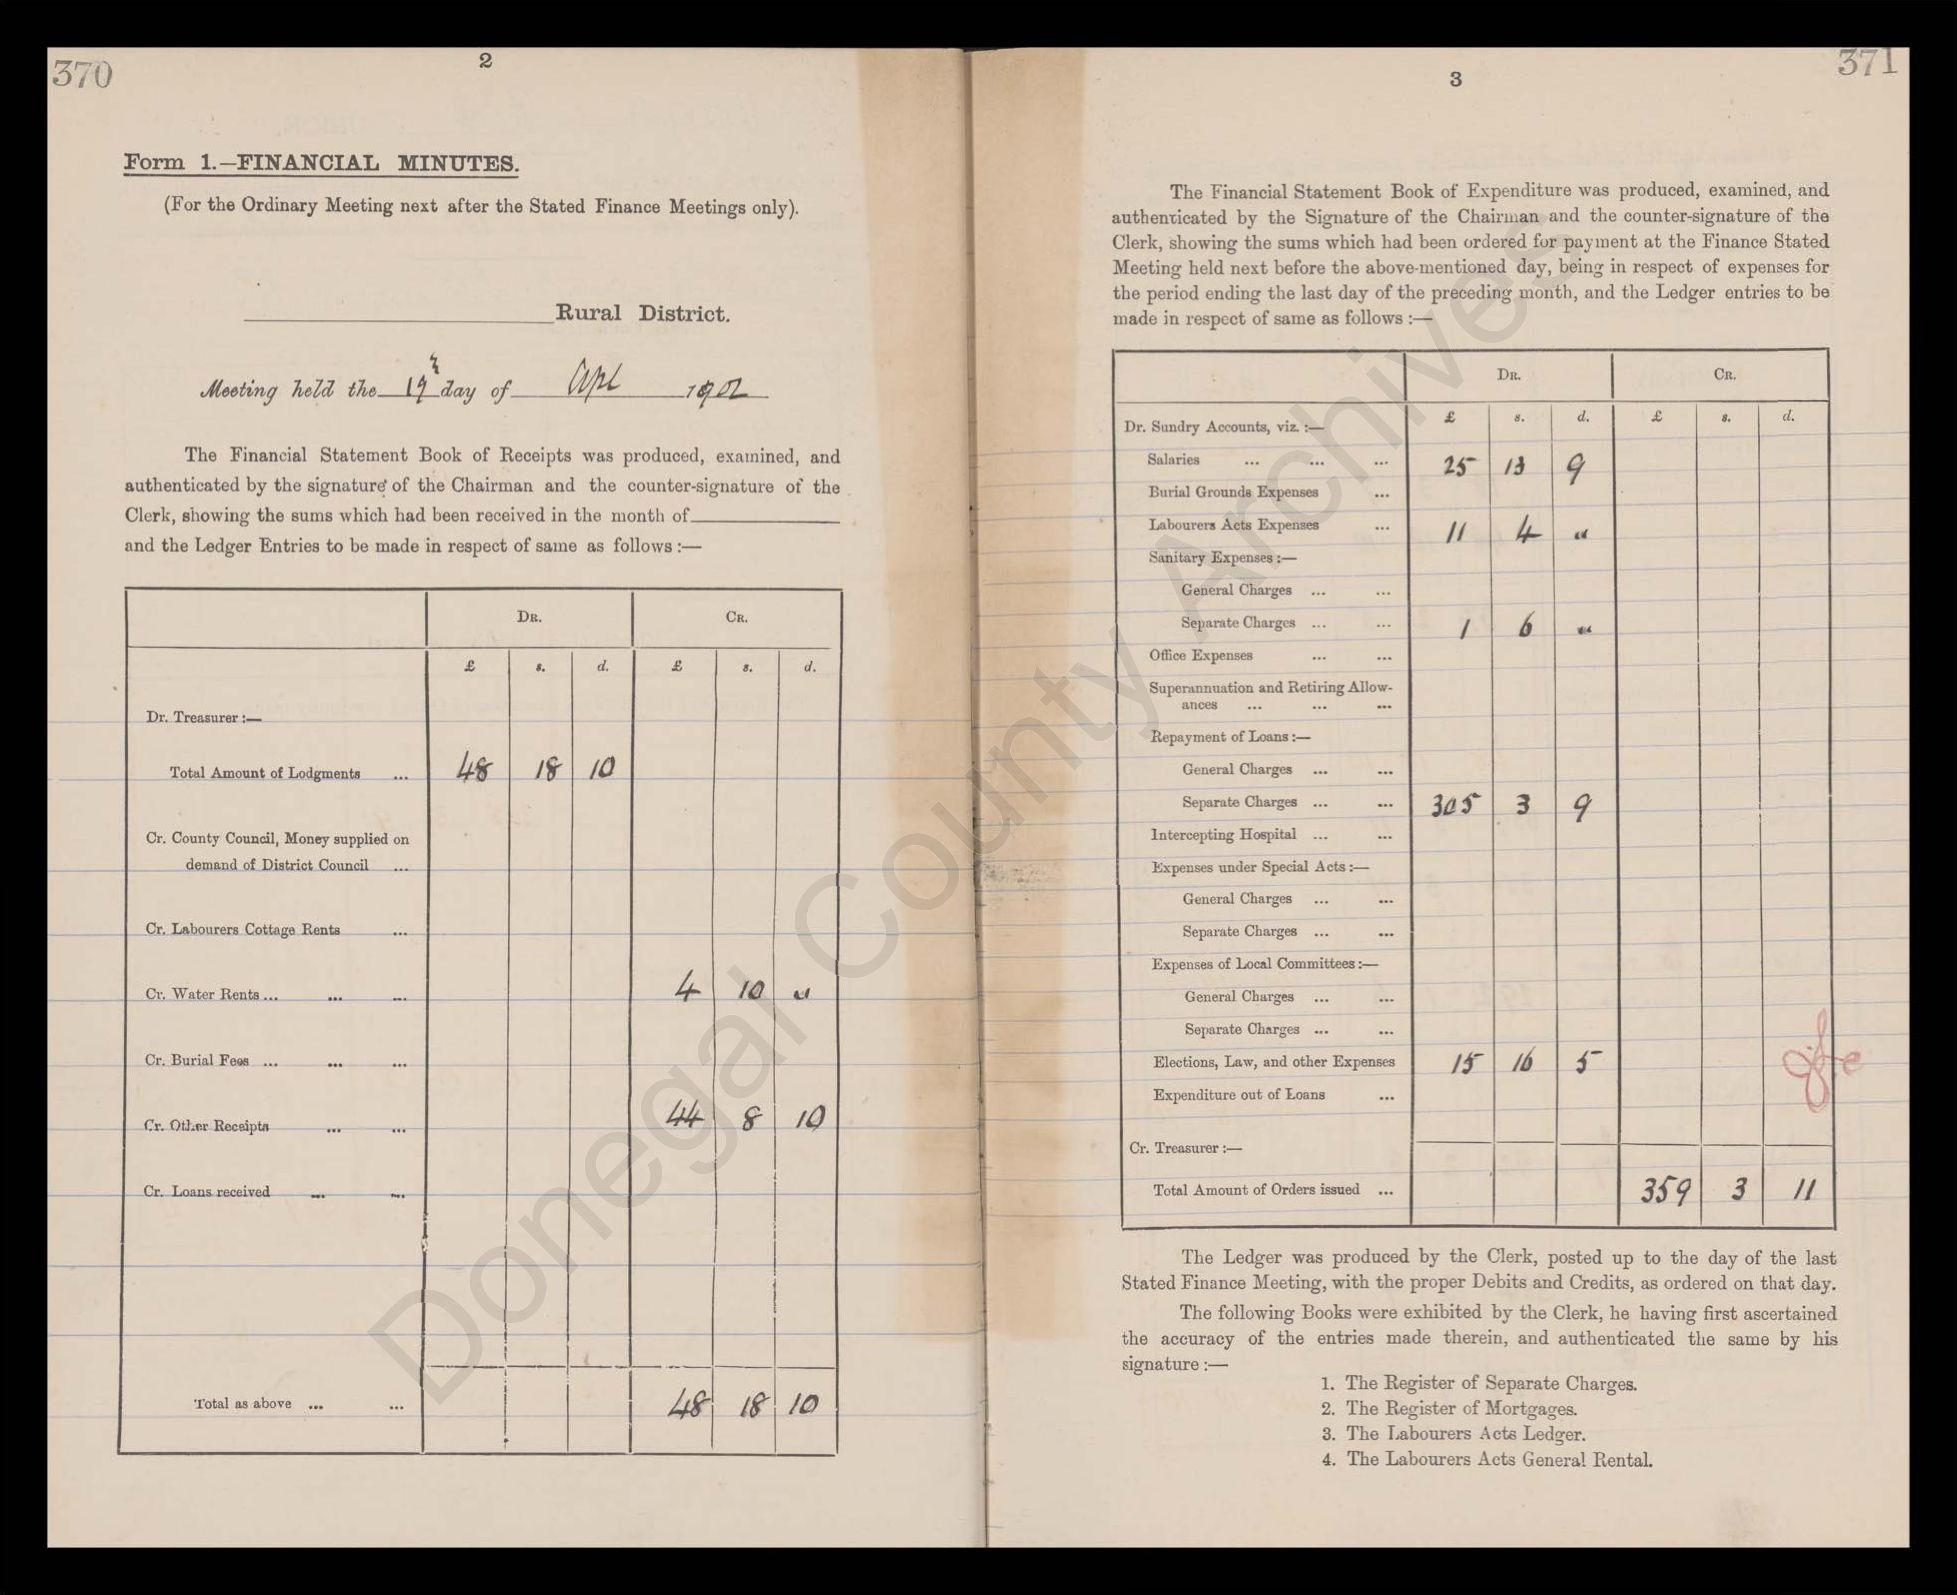 370
2
Form 1.—FINANCIAL MINUTES.
(For the Ordinary Meeting next after the Stated Finance Meetings only).
Rural District.
Meeting held the 19th day of Apl 1902
The Financial Statement Book of Receipts was produced, examined, and
authenticated by the signature of the Chairman and the counter-signature of the
Clerk, showing the sums which had been received in the month of
and the Ledger Entries to be made in respect of same as follows :—
DR. CR.
£ s. d. £ s. d.
Dr. Treasurer :—
Total Amount of Lodgments ... 48 18 10
Cr. County Council, Money supplied on
demand of District Council ...
Cr. Labourers Cottage Rents ...
Cr. Water Rents ... ... ... 4 10 "
Cr. Burial Fees ... ... ...
Cr. Other Receipts ... ... 44 8 10
Cr. Loans received ... ...
Total as above ... ... 48 18 10
371
3
The Financial Statement Book of Expenditure was produced, examined, and
authenticated by the Signature of the Chairman and the counter-signature of the
Clerk, showing the sums which had been ordered for payment at the Finance Stated
Meeting held next before the above-mentioned day, being in respect of expenses for
the period ending the last day of the preceding month, and the Ledger entries to be
made in respect of same as follows :—
DR. CR.
£ s. d. £ s. d.
Dr. Sundry Accounts, viz. :—
Salaries ... ... ... 25 13 9
Burial Grounds Expenses ...
Labourers Acts Expenses ... 11 4 "
Sanitary Expenses :—
General Charges ... ...
Separate Charges ... ... 1 6 "
Office Expenses ... ...
Superannuation and Retiring Allow-
ances ... ... ...
Repayment of Loans :—
General Charges ... ...
Separate Charges ... ... 305 3 9
Intercepting Hospital ... ...
Expenses under Special Acts :—
General Charges ... ...
Separate Charges ... ...
Expenses of Local Committees :—
General Charges ... ...
Separate Charges ... ...
Elections, Law, and other Expenses 15 16 5
Expenditure out of Loans ...
Cr. Treasurer :—
Total Amount of Orders issued ... 359 3 11
The Ledger was produced by the Clerk, posted up to the day of the last
Stated Finance Meeting, with the proper Debits and Credits, as ordered on that day.
The following Books were exhibited by the Clerk, he having first ascertained
the accuracy of the entries made therein, and authenticated the same by his
signature :—
1. The Register of Separate Charges.
2. The Register of Mortgages.
3. The Labourers Acts Ledger.
4. The Labourers Acts General Rental.
Donegal County Archives